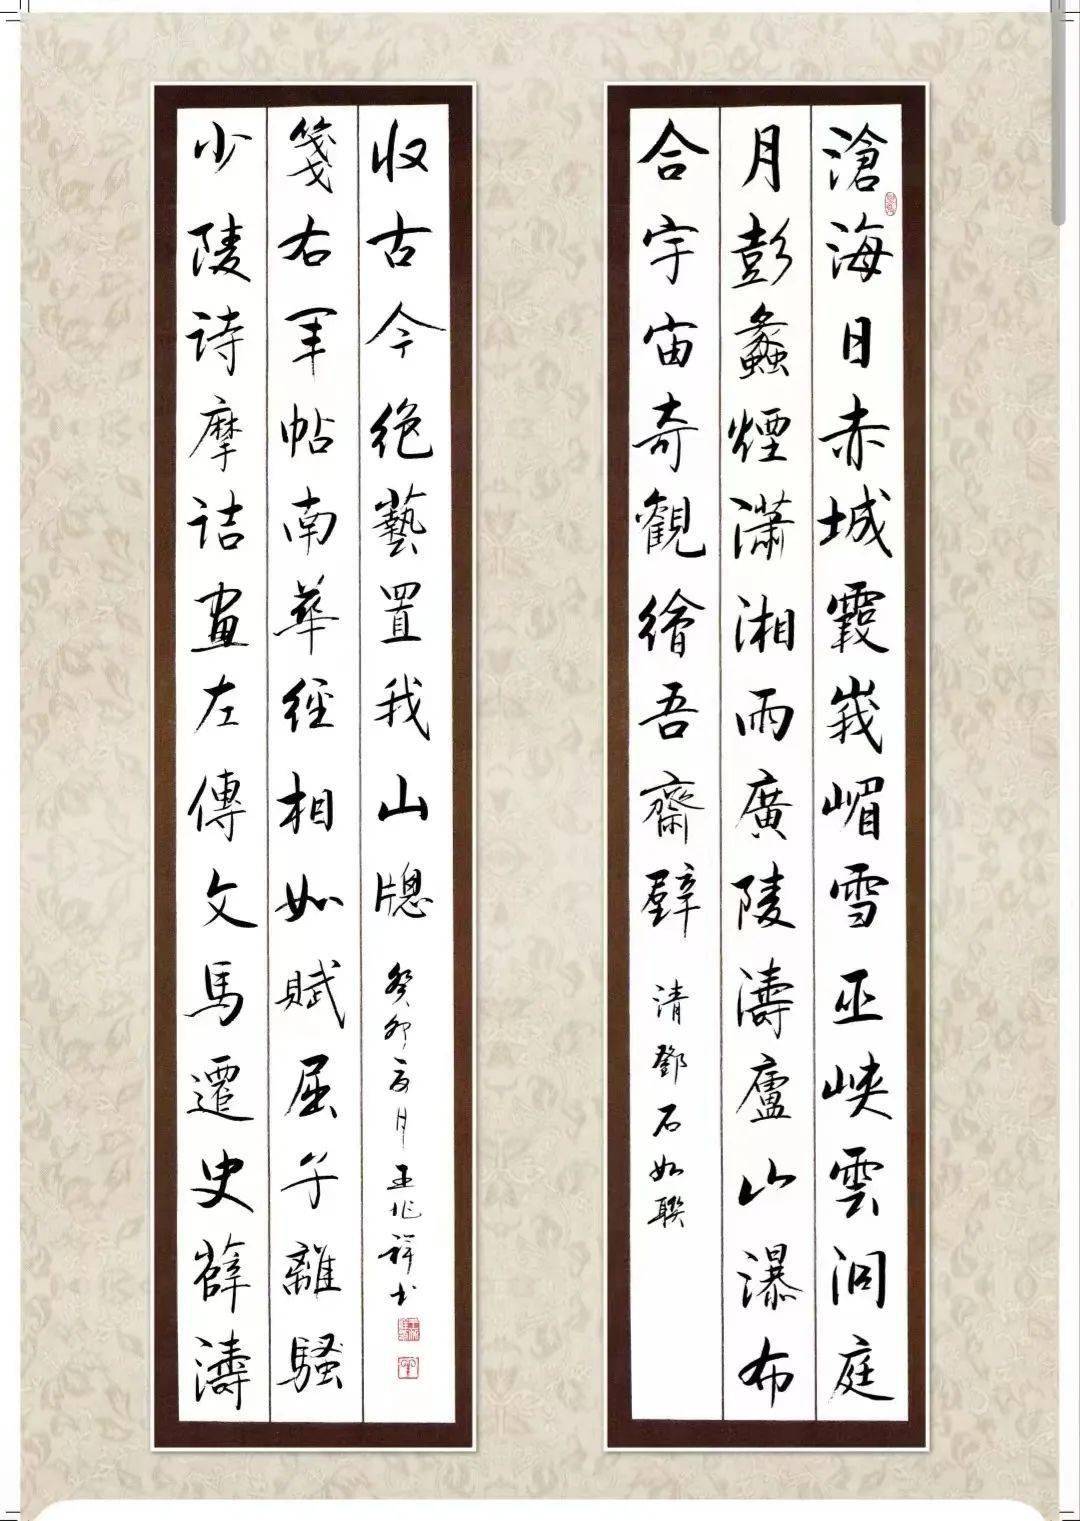 滄海日赤城霞峩嵋雪巫峽雲洞庭
月彭蠡煙瀟湘雨廣陵濤廬山瀑布
合宇宙奇觀繪吾齋壁 清鄧石如聯
少陵詩摩詰畫左傳文馬遷史薛濤
箋右軍帖南華經相如賦屈子離騷
收古今絶藝置我山牕 癸卯夏月王兆祥书